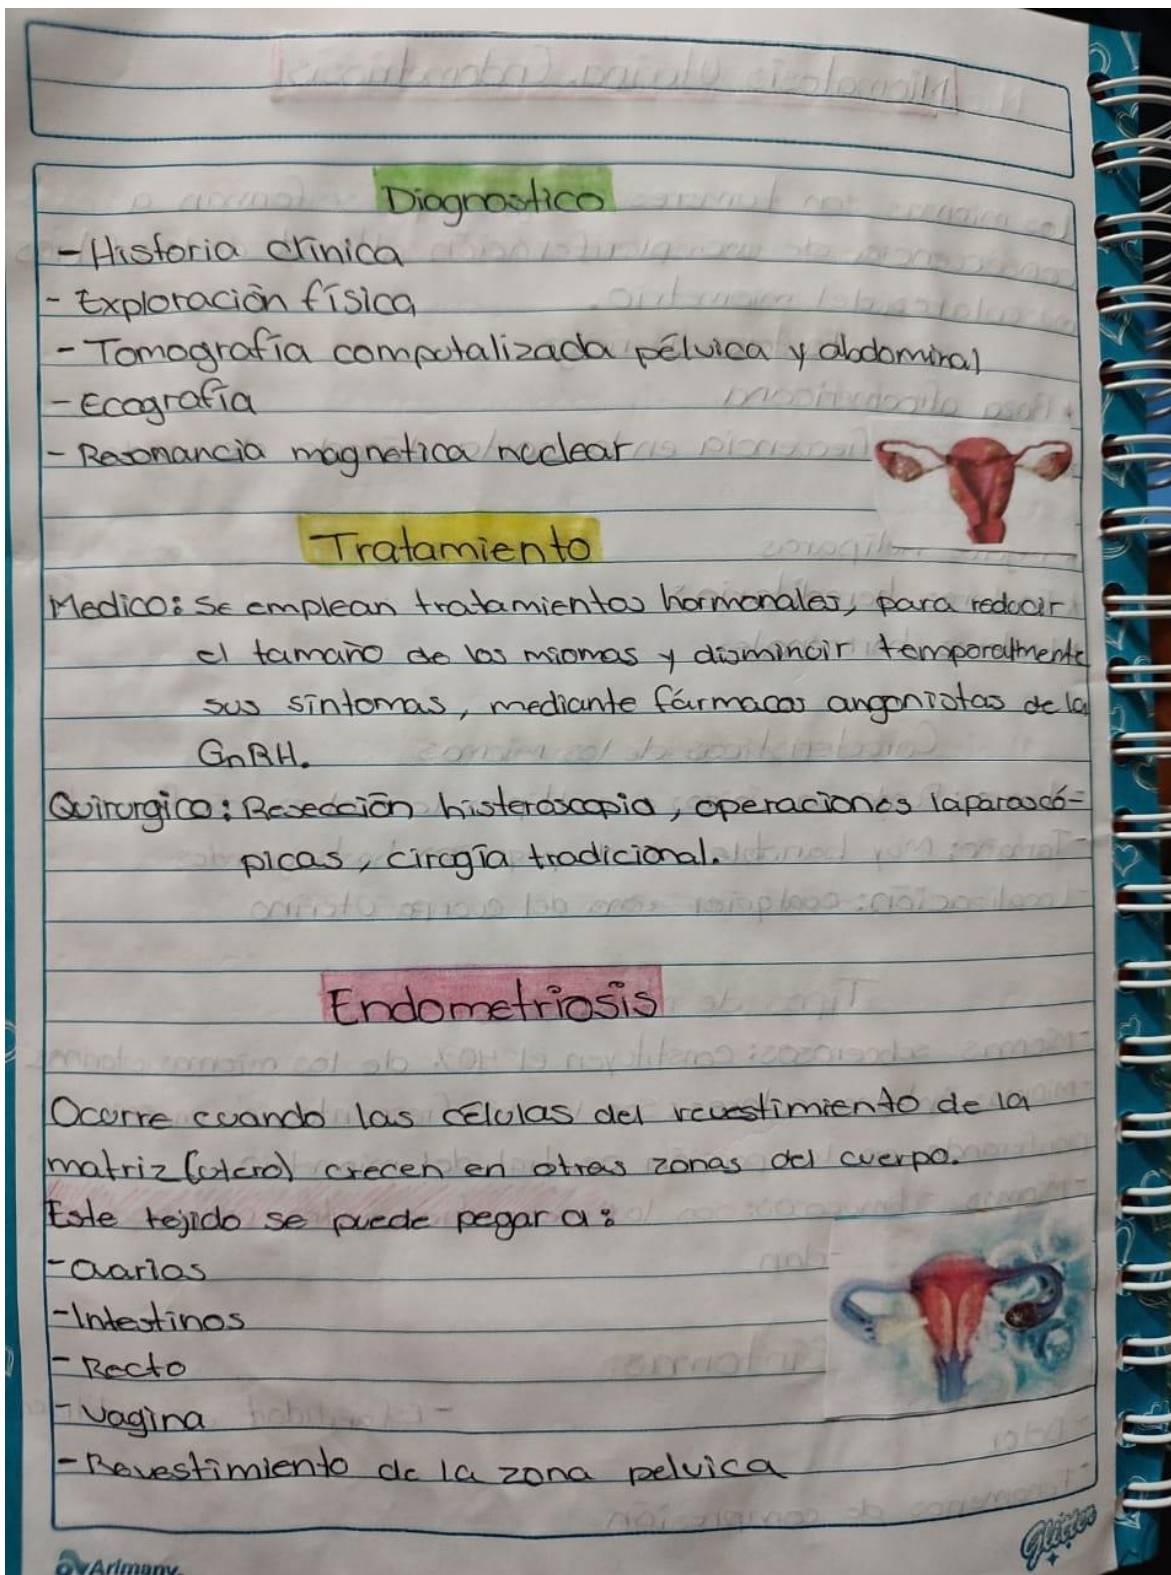 Diagnostico
- Historia clínica
- Exploración física
- Tomografía computalizada pélvica y abdominal
- Ecografía
- Resonancia magnetica neclear
Tratamiento
Medico: Se emplean tratamientos hormonales, para reducir
el tamaño de los miomas y disminuir temporalmente
sus síntomas, mediante fármacos angonistas de la
GnRH.
Quirurgico: Resección histeroscopia, operaciones laparoscó-
picas, cirugía tradicional.
Endometriosis
Ocurre cuando las células del revestimiento de la
matriz (utero) crecen en otras zonas del cuerpo.
Este tejido se puede pegar a:
- Ovarios
- Intestinos
- Recto
- Vagina
- Revestimiento de la zona pelvica
Glitter
Arimany